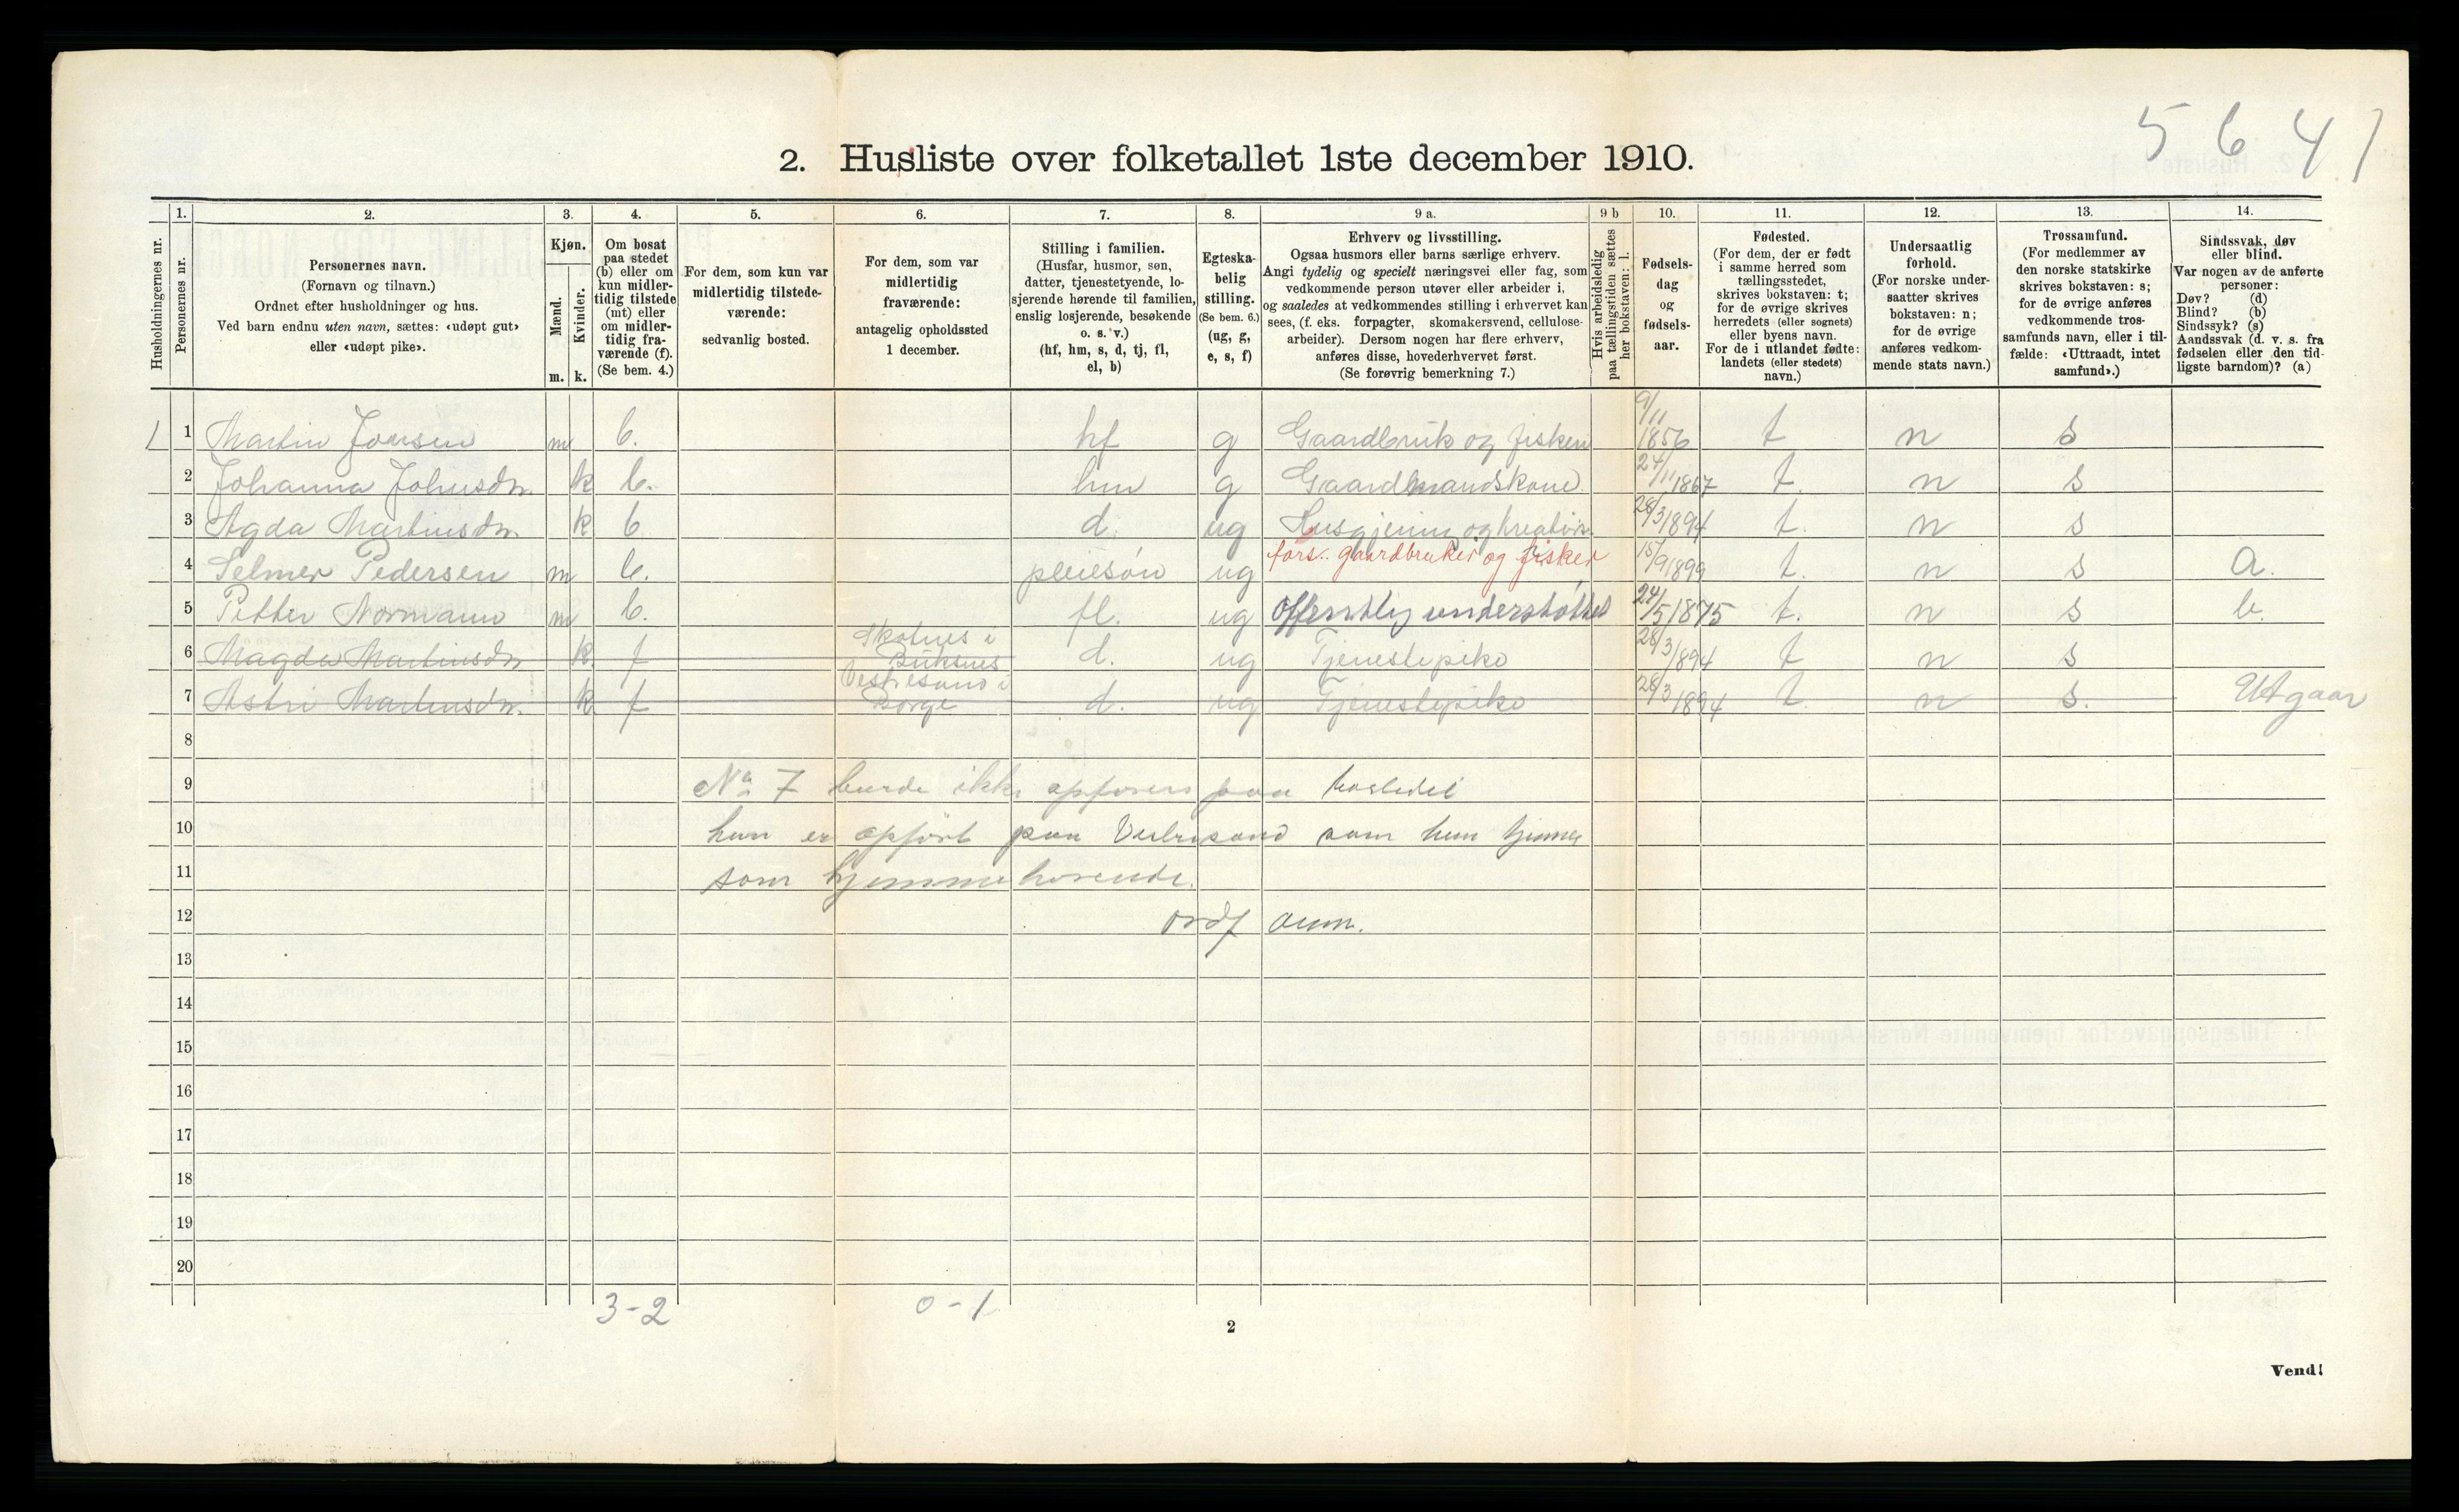 5 6 4 1
2. Husliste over folketallet 1ste december 1910.
Husholdningernes nr.
1.
Personernes nr.
2.
Personernes navn.
(Fornavn og tilnavn.)
Ordnet efter husholdninger og hus.
Ved barn endnu uten navn, sættes: «udøpt gut»
eller «udøpt pike».
3.
Kjøn.
Mænd.
Kvinder.
m. k.
4.
Om bosat
paa stedet
(b) eller om
kun midler-
tidig tilstede
(mt) eller
om midler-
tidig fra-
værende (f).
(Se bem. 4.)
5.
For dem, som kun var
midlertidig tilstede-
værende:
sedvanlig bosted.
6.
For dem, som var
midlertidig
fraværende:
antagelig opholdssted
1 december.
7.
Stilling i familien.
(Husfar, husmor, søn,
datter, tjenestetyende, lo-
sjerende hørende til familien,
enslig losjerende, besøkende
o. s. v.)
(hf, hm, s, d, tj, fl,
el, b)
8.
Egteska-
belig
stilling.
(Se bem. 6.)
(ug, g,
e, s, f)
9 a.
Erhverv og livsstilling.
Ogsaa husmors eller barns særlige erhverv.
Angi tydelig og specielt næringsvei eller fag, som
vedkommende person utøver eller arbeider i,
og saaledes at vedkommendes stilling i erhvervet kan
sees, (f. eks. forpagter, skomakersvend, cellulose-
arbeider). Dersom nogen har flere erhverv,
anføres disse, hovederhvervet først.
(Se forøvrig bemerkning 7.)
9 b
Hvis arbeidsledig
paa tællingstiden sættes
her bokstaven: l.
10.
Fødsels-
dag
og
fødsels-
aar.
11.
Fødested.
(For dem, der er født
i samme herred som
tællingsstedet,
skrives bokstaven: t;
for de øvrige skrives
herredets (eller sognets)
eller byens navn.
For de i utlandet fødte:
landets (eller stedets)
navn.)
12.
Undersaatlig
forhold.
(For norske under-
saatter skrives
bokstaven: n;
for de øvrige
anføres vedkom-
mende stats navn.)
13.
Trossamfund.
(For medlemmer av
den norske statskirke
skrives bokstaven: s;
for de øvrige anføres
vedkommende tros-
samfunds navn, eller i til-
fælde: «Uttraadt, intet
samfund».)
14.
Sindssvak, døv
eller blind.
Var nogen av de anførte
personer:
Døv? (d)
Blind? (b)
Sindssyk? (s)
Aandssvak (d. v. s. fra
fødselen eller den tid-
ligste barndom)? (a)
1 1 Martin Jonsen m b. hf g Gaardbruk og fisken 9/11 1856 t n s
2 Johanna Johnsdr. k b. hm g Gaardmandskone 24/11 1867 t. n s
3 Agda Martinsdr. k b d. ug Husgjerning og kreaturs. 28/3 1894 t. n s
fors. gaardbruker og fisker
4 Selmer Pedersen m b. pleiesøn ug 15/9 1899 t. n s a.
5 Petter Normann m b. fl. ug Offentlig understøttet 24/5 1875 t. n s b.
6 Magda Martinsdr k. f Skotnes i Buksnes d. ug Tjenestepike 28/3 1894 t n s
7 Astri Martinsdr. k f Vestresand i Borge d. ug Tjenestepike 28/3 1894 t n s. Utgaar
8
9 No 7 burde ikke opføres paa
10 hun er opført paa Vestresand som hun tjener
11 som hjemmehørende.
12 ordf anm.
13
14
15
16
17
18
19
20
3-2 0-1
2
Vend!